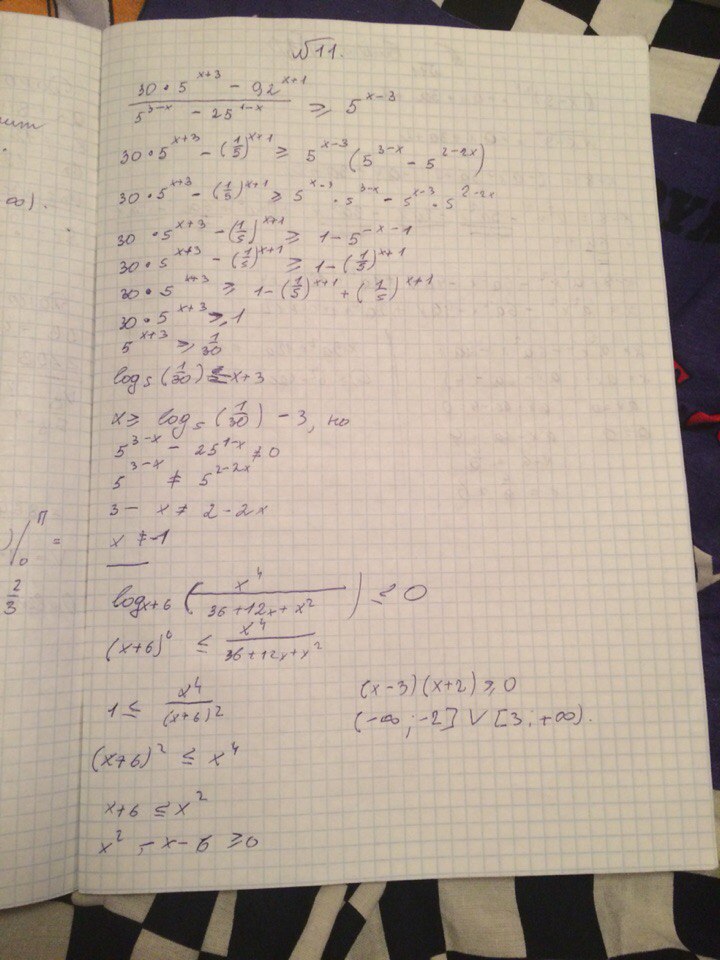 №11.
(30 · 5^(x+3) − 0,2^(x+1)) / (5^(3−x) − 25^(1−x)) ≥ 5^(x−3)
30 · 5^(x+3) − (1/5)^(x+1) ≥ 5^(x−3) (5^(3−x) − 5^(2−2x))
30 · 5^(x+3) − (1/5)^(x+1) ≥ 5^(x−3) · 5^(3−x) − 5^(x−3) · 5^(2−2x)
30 · 5^(x+3) − (1/5)^(x+1) ≥ 1 − 5^(−x−1)
30 · 5^(x+3) − (1/5)^(x+1) ≥ 1 − (1/5)^(x+1)
30 · 5^(x+3) ≥ 1 − (1/5)^(x+1) + (1/5)^(x+1)
30 · 5^(x+3) ≥ 1
5^(x+3) ≥ 1/30
log₅(1/30) ≤ x+3
x ≥ log₅(1/30) − 3, но
5^(3−x) − 25^(1−x) ≠ 0
5^(3−x) ≠ 5^(2−2x)
3 − x ≠ 2 − 2x
x ≠ −1
log_(x+6) (x^4 / (36+12x+x^2)) ≥ 0
(x+6)^0 ≤ x^4 / (36+12x+x^2)
1 ≤ x^4 / (x+6)^2
(x+6)^2 ≤ x^4
x+6 ≤ x^2
x^2 − x − 6 ≥ 0
(x−3)(x+2) ≥ 0
(−∞; −2] ∨ [3; +∞).
∞).
)/ П 0 =
2/3